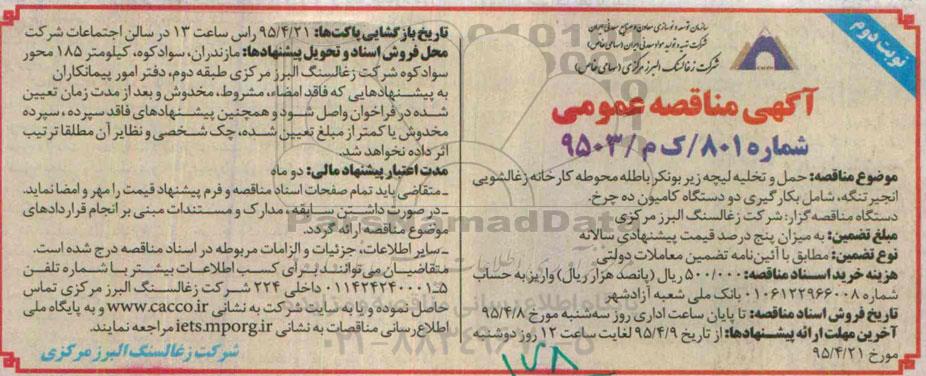 نوبت دوم
سازمان توسعه و نوسازی معادن و صنایع معدنی ایران
شرکت تهیه و تولید مواد معدنی ایران (سهامی خاص)
شرکت زغالسنگ البرز مرکزی (سهامی خاص)
آگهی مناقصه عمومی
شماره ۸۰۱/ک م/۹۵۰۳
موضوع مناقصه: حمل و تخلیه لیچه زیر بونکر باطله محوطه کارخانه زغالشویی
انجیرتنگه، شامل بکارگیری دو دستگاه کامیون ده چرخ.
دستگاه مناقصه گزار: شرکت زغالسنگ البرز مرکزی
مبلغ تضمین: به میزان پنج درصد قیمت پیشنهادی سالانه
نوع تضمین: مطابق با آئین‌نامه تضمین معاملات دولتی
هزینه خرید اسناد مناقصه: ۵۰۰/۰۰۰ ریال (پانصد هزار ریال) واریز به حساب
شماره ۰۱۰۶۱۲۲۹۶۶۰۰۸ بانک ملی شعبه آزادشهر
تاریخ فروش اسناد مناقصه: تا پایان ساعت اداری روز سه‌شنبه مورخ ۹۵/۴/۸
آخرین مهلت ارائه پیشنهادها: از تاریخ ۹۵/۴/۹ لغایت ساعت ۱۲ روز دوشنبه
مورخ ۹۵/۴/۲۱
تاریخ بازگشایی پاکت‌ها: ۹۵/۴/۲۱ راس ساعت ۱۳ در سالن اجتماعات شرکت
محل فروش اسناد و تحویل پیشنهادها: مازندران، سوادکوه، کیلومتر ۱۸۵ محور
سوادکوه شرکت زغالسنگ البرز مرکزی طبقه دوم، دفتر امور پیمانکاران
به پیشنهادهایی که فاقد امضاء، مشروط، مخدوش و بعد از مدت زمان تعیین
شده در فراخوان واصل شود و همچنین پیشنهادهای فاقد سپرده، سپرده
مخدوش یا کمتر از مبلغ تعیین شده، چک شخصی و نظایر آن مطلقا ترتیب
اثر داده نخواهد شد.
مدت اعتبار پیشنهاد مالی: دو ماه
ـ متقاضی باید تمام صفحات اسناد مناقصه و فرم پیشنهاد قیمت را مهر و امضا نماید.
ـ در صورت داشتن سابقه، مدارک و مستندات مبنی بر انجام قراردادهای
موضوع مناقصه ارائه گردد.
ـ سایر اطلاعات، جزئیات و الزامات مربوطه در اسناد مناقصه درج شده است.
متقاضیان می‌توانند برای کسب اطلاعات بیشتر با شماره تلفن
۵ـ۰۱۱۴۲۴۲۴۰۰۰۱ داخلی ۲۲۴ شرکت زغالسنگ البرز مرکزی تماس
حاصل نموده و یا به سایت شرکت به نشانی www.cacco.ir و به پایگاه ملی
اطلاع‌رسانی مناقصات به نشانی iets.mporg.ir مراجعه نمایند.
شرکت زغالسنگ البرز مرکزی
ParsNamadData
۱۷۸